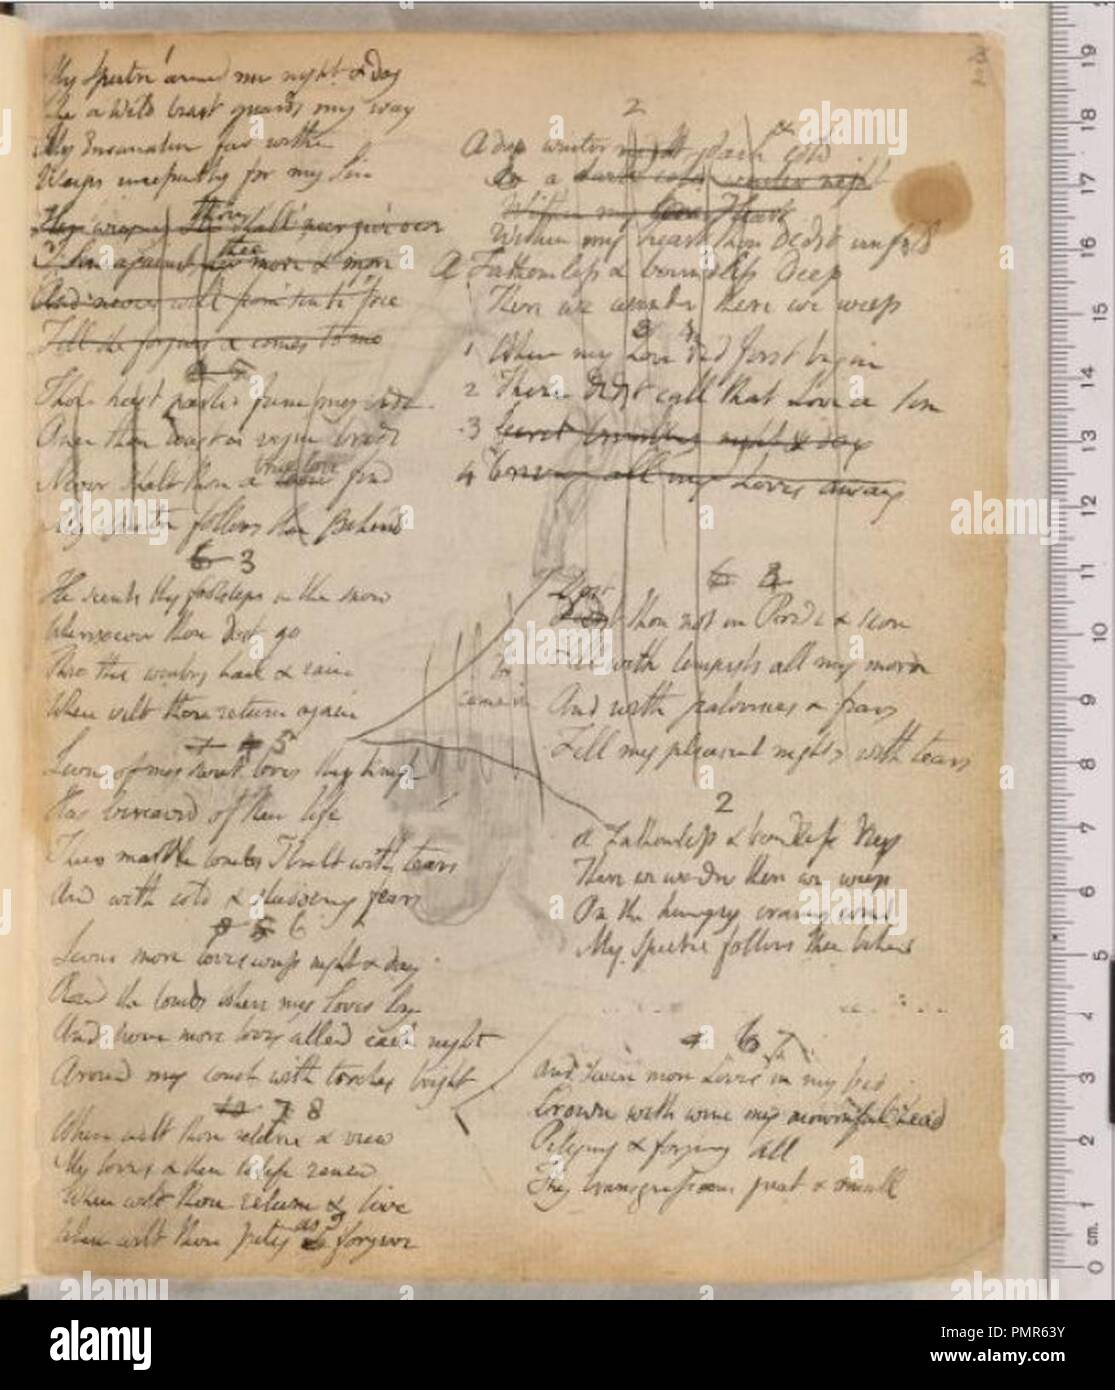 My Spectre around me night & day
Like a Wild beast guards my way
My Emanation far within
Weeps incessantly for my Sin
thou
Her weeping She shall neer give oer
thee
I Sin against her more & more
And never will from sin be free
Till she forgives & comes to me
Thou hast parted from my side
Once thou wast a virgin bride
true love
Never shalt thou a find
My Spectre follows thee Behind
6 3
He scents thy footsteps in the snow
Wheresoever thou dost go
Thro the wintry hail & rain
When wilt thou return again
7 4 5
Seven of my sweet loves thy knife
Has bereaved of their life
Their marble tombs I built with tears
And with cold & shuddering fears
6
Seven more loves weep night & day
Round the tombs where my loves lay
And seven more loves attend each night
Around my couch with torches bright
10 7 8
When wilt thou return & view
My loves & them to life renew
When wilt thou return & live
as I
When wilt thou pity forgive
2
A deep winter night dark cold
a dark cold winter night
Within my Heart
Within my heart thou didst unfold
A Fathomless & boundless deep
There we wander there we weep
3 4
1 When my Love did first begin
2 Thou didst call that Love a Sin
3 Secret trembling night & day
4 Driving all my Loves away
6
Dost
thou not in Pride & scorn
Fill with tempests all my morn
And with jealousies & fears
Fill my pleasant nights with tears
to
come in
2
a Fathomless & boundless deep
There we wander there we weep
On the hungry craving wind
My Spectre follows thee behind
6 7
And seven more Loves in my bed
Crown with wine my mournful head
Pitying & forgiving all
Thy transgressions great & small
19
18
17
16
15
14
13
12
11
10
9
8
7
6
5
4
3
2
1
0
cm.
alamy
a
alamy
Image ID: PMR63Y
www.alamy.com